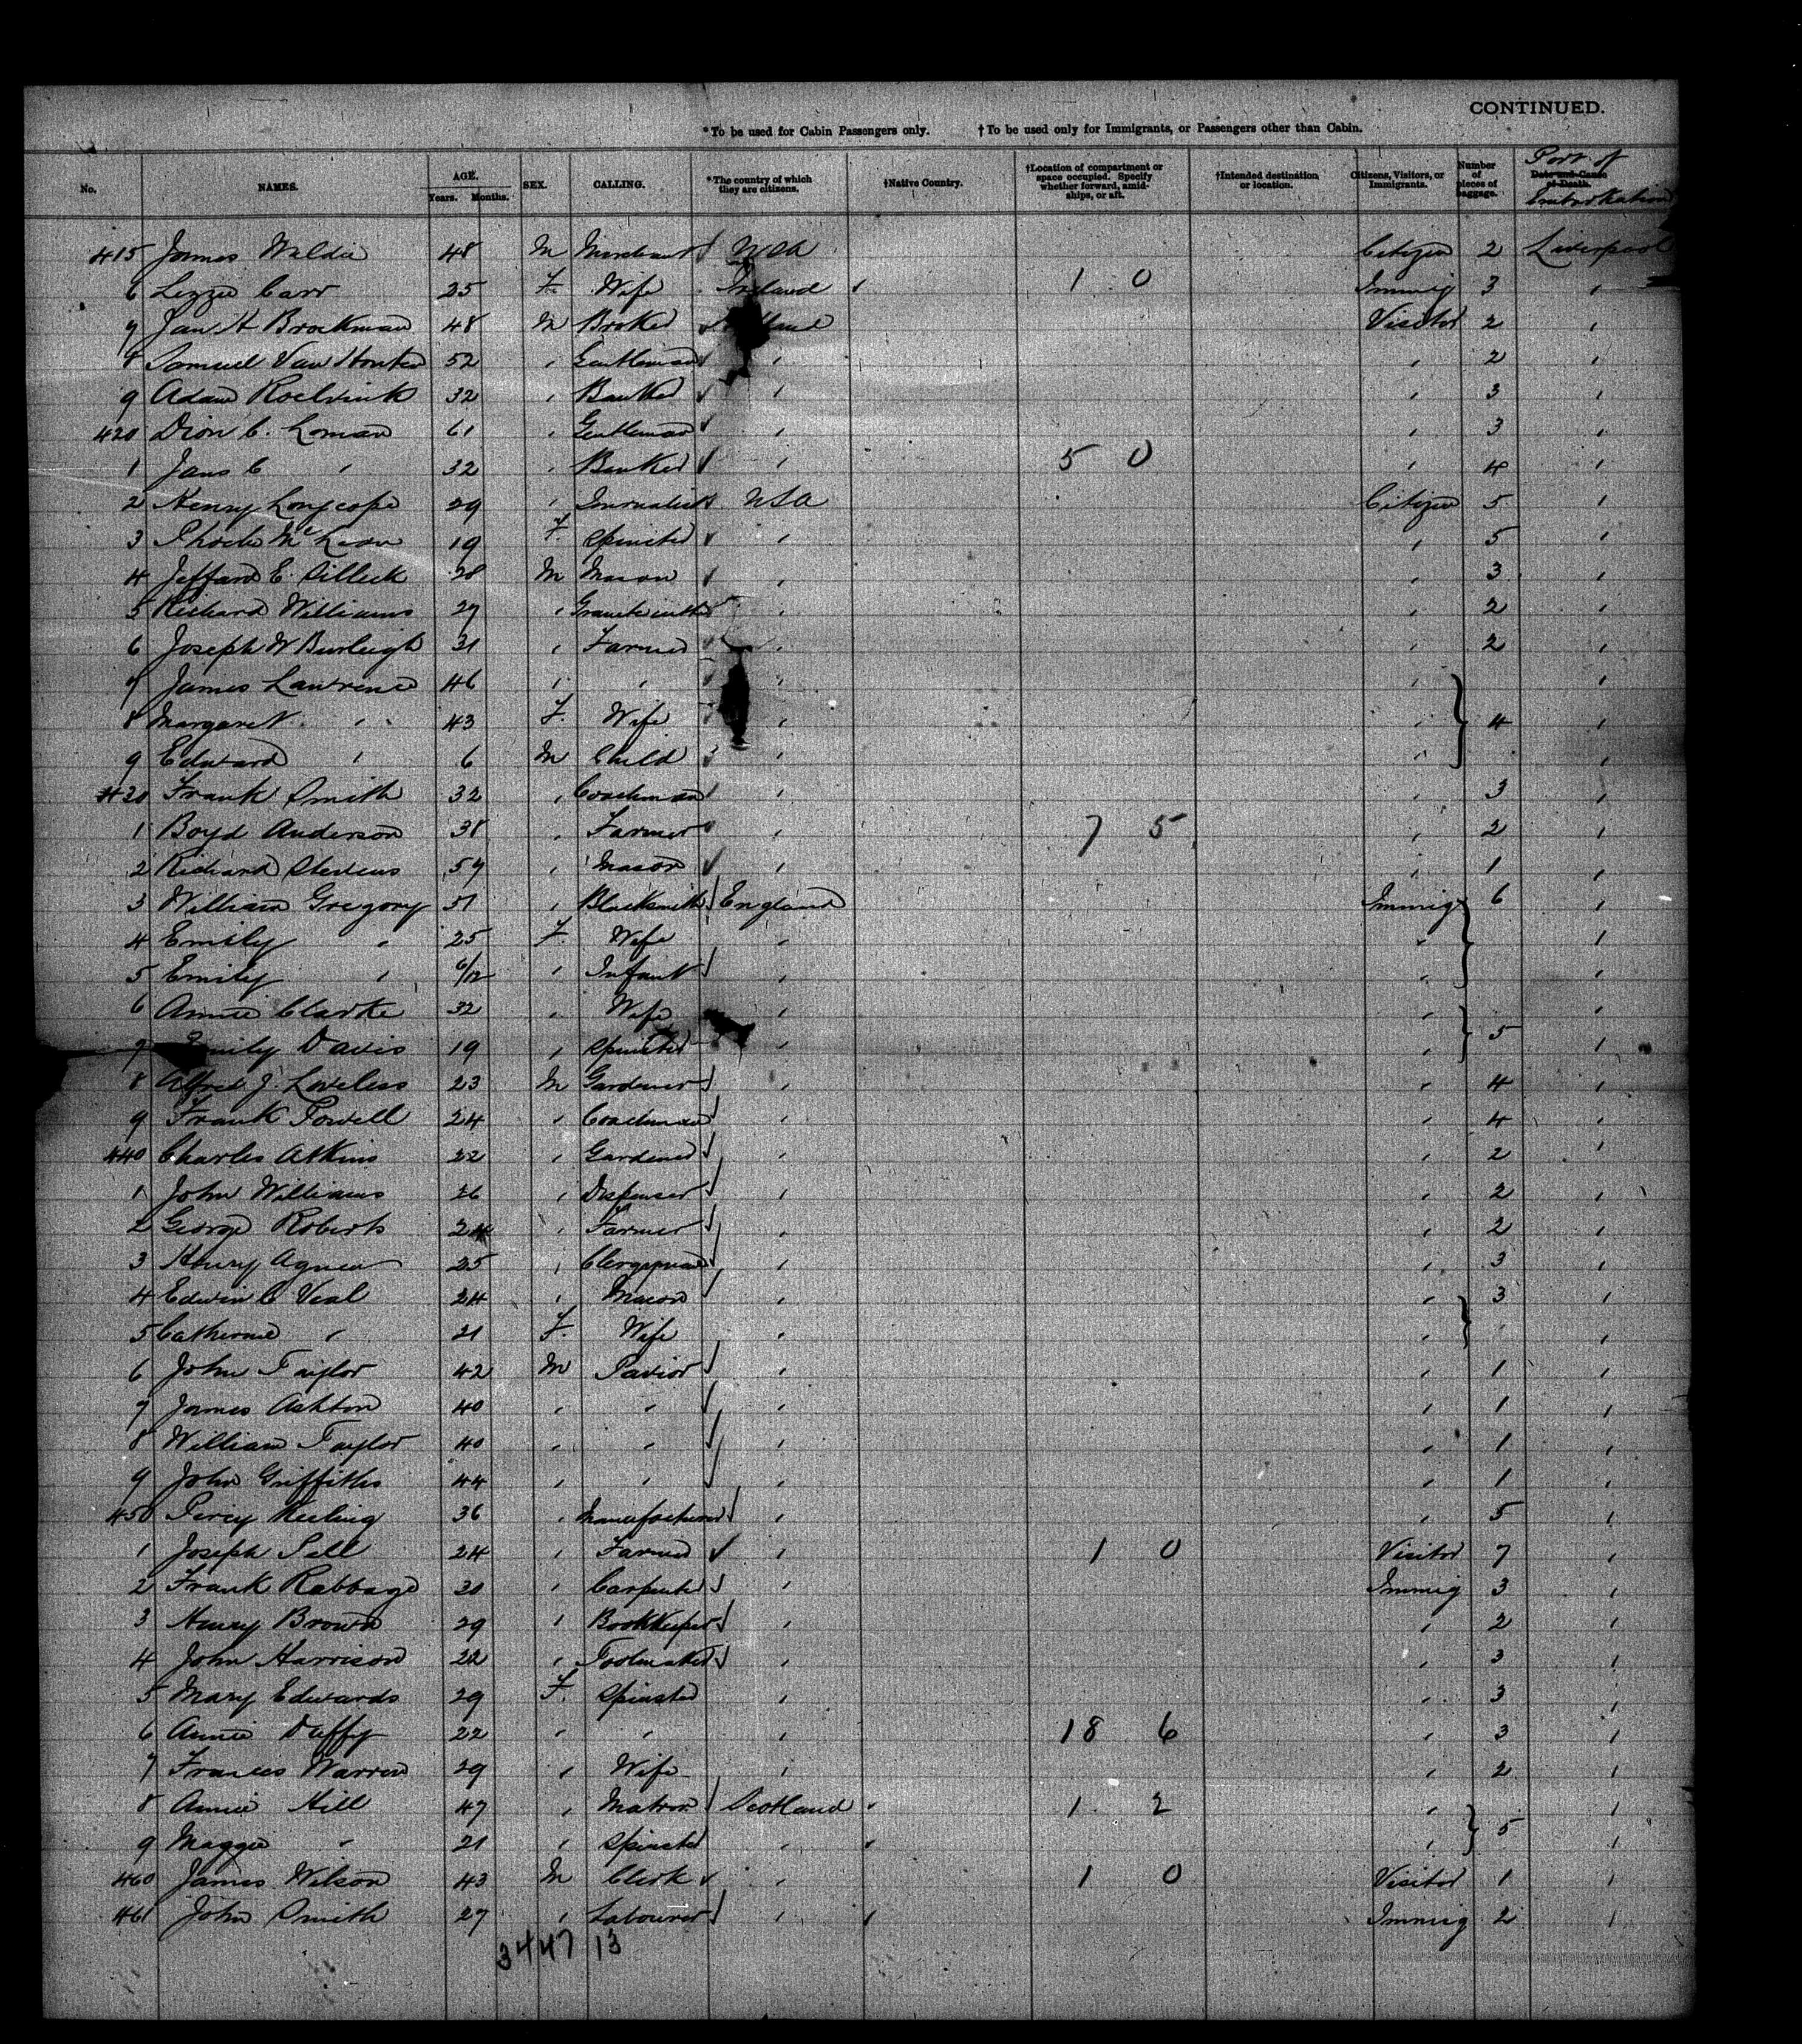 CONTINUED.
*To be used for Cabin Passengers only. †To be used only for Immigrants, or Passengers other than Cabin.
No. NAMES. AGE. Years. Months. SEX. CALLING. *The country of which they are citizens. †Native Country. †Location of compartment or space occupied. Specify whether forward, amidships, or aft. †Intended destination or location. Citizens, Visitors, or Immigrants. Number of pieces of baggage. Date and Cause of Death. Port of Embarkation
415 James Waldie 48 M Merchant USA Citizen 2 Liverpool
6 Lizzie Carr 25 F Wife Ireland 1 0 Immig 3 "
7 Jan H Brockman 48 M Broker Visitor 2 "
8 Samuel Van Houten 52 " Gentleman " " 2 "
9 Adam Roelvink 32 " Banker " " 3 "
420 Dion C. Loman 61 " Gentleman " " 3 "
1 Jans C " 32 " Banker " 5 0 " 4 "
2 Henry Longcope 29 " Journalist USA Citizen 5 "
3 Phoebe McLean 19 F Spinster " " 5 "
4 Jeffard E. Silleck 28 M Mason " " 3 "
5 Richard Williams 27 " Granite cutter " " 2 "
6 Joseph W Burleigh 31 " Farmer " " 2 "
7 James Lawrence 46 " " " " "
8 Margaret " 43 F. Wife " " 4 "
9 Edward " 6 M Child " " "
430 Frank Smith 32 " Coachman " " 3 "
1 Boyd Anderson 38 " Farmer " 7 5 " 2 "
2 Richard Stevens 57 " Mason " " 1 "
3 William Gregory 31 " Blacksmith England Immig 6 "
4 Emily " 25 F. Wife " " "
5 Emily " 6/12 " Infant " " "
6 Annie Clarke 32 " Wife " " "
7 Emily Davis 19 " Spinster " " 5 "
8 Alfred J. Loveless 23 M Gardener " " 4 "
9 Frank Powell 24 " Coachman " " 4 "
440 Charles Atkins 22 " Gardener " " 2 "
1 John Williams 26 " Dispenser " " 2 "
2 George Roberts 24 " Farmer " " 2 "
3 Henry Agnew 25 " Clergyman " " 3 "
4 Edwin C Veal 24 " Mason " " 3 "
5 Catherine " 21 F. Wife " " "
6 John Taylor 42 M Pavior " " 1 "
7 James Ashton 40 " " " " 1 "
8 William Taylor 40 " " " " 1 "
9 John Griffiths 44 " " " " 1 "
450 Percy Keeling 36 " Manufacturer " " 5 "
1 Joseph Sell 24 " Farmer " 1 0 Visitor 7 "
2 Frank Rabbage 30 " Carpenter " Immig 3 "
3 Henry Brown 29 " Bookkeeper " " 2 "
4 John Harrison 22 " Toolmaker " " 3 "
5 Mary Edwards 29 F. Spinster " " 3 "
6 Annie Duffy 22 " " " 18 6 " 3 "
7 Frances Warren 29 " Wife " " 2 "
8 Annie Hill 47 " Matron Scotland " 1 2 " "
9 Maggie " 21 " Spinster " " " 5 "
460 James Wilson 43 M Clerk " 1 0 Visitor 1 "
461 John Smith 27 " Labourer " " Immig 2 "
34 47 13